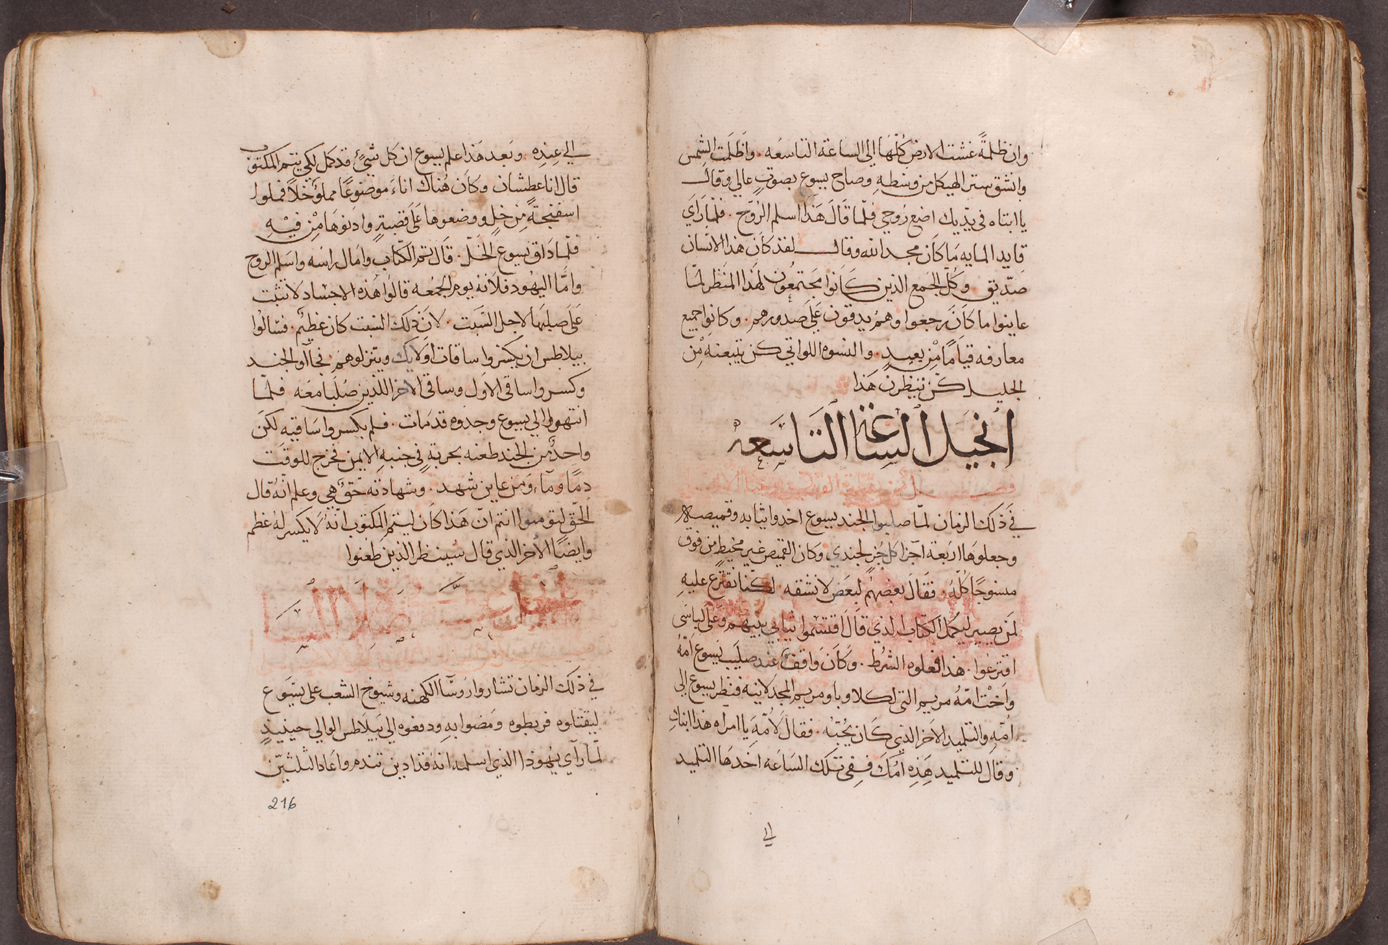 وان ظلمة غشت الارض كلها الى الساعة التاسعه . واظلمت الشمس
وانشق ستر الهيكل من وسطه وصاح يسوع بصوت عالي وقال
يا ابتاه في يديك اضع روحي فلما قال هذا اسلم الروح . فلما راي
قايد المايه ما كان مجد الله وقال لقد كان هذا الانسان
صديق . وكل الجمع الذين كانوا مجتمعون لهذا المنظر لما
عاينوا ما كان رجعوا وهم يدقون على صدورهم . وكانوا جميع
معارفه قياما من بعيد . والنسوه اللواتي كن يتبعنه من
الجليل كن ينظرن هذا
انجيل الساعة التاسعه
في ذلك الزمان لما صلبوا الجند يسوع اخدوا ثيابه وقميصه
وجعلوها اربعة اجزا كل جز لجندي وكان القميص غير مخيط من فوق
منسوجا كله . فقال بعضهم لبعض لا نشقه لكننا نقترع عليه
لمن يصير ليكمل الكتاب الذي قال اقتسموا ثيابي بينهم وعلى لباسي
اقترعوا . هذا فعلوه الشرط . وكان واقفا عند صليب يسوع امه
واخت امه مريم التي لكلاوبا ومريم المجدلانيه فنظر يسوع الى
امه والتلميد الاخر الذي كان يحبه . فقال لامه يا امراه هذا ابنك
وقال للتلميد هذه امك ففي تلك الساعه اخدها التلميد
الى
الى عنده . وبعد هذا علم يسوع ان كل شي قد كمل لكي يتم المكتوب
قال انا عطشان وكان هناك اناء موضوعا مملو خلا فملوا
اسفنجة من خل ووضعوها على قصبة وادنوها من فيه
فلما ذاق يسوع الخل . قال تم الكتاب وامال راسه واسلم الروح
واما اليهود فلانه يوم الجمعه قالوا هذه الاجساد لا تثبت
على صلبها لاجل السبت . لان ذلك السبت كان عظيم . فسالوا
بيلاطس ان يكسروا ساقات اولايك وينزلوهم فجا اولجند
وكسروا ساقي الاول وساقي الاخر اللذين صلبا معه فلما
انتهوا الى يسوع وجدوه قد مات . فلم يكسروا ساقيه لكن
واحد من الجند طعنه بحربة في جنبه الايمن فخرج للوقت
دما وما ، ومن عاين شهد . وشهادته حق هي وعلم انه قال
الحق لتومنوا انتم ان هذا كان ليتم المكتوب انه لا يكسر له عظم
وايضا الاخر الذي قال سينظر الذين طعنوا
في ذلك الزمان تشاروا روسا الكهنه وشيوخ الشعب على يسوع
ليقتلوه فربطوه ومضوا به ودفعوه الى بيلاطس الوالي حينيد
لما راي يهودا الذي اسلمه انه قد ادين تندم واعاد الثلثين
216